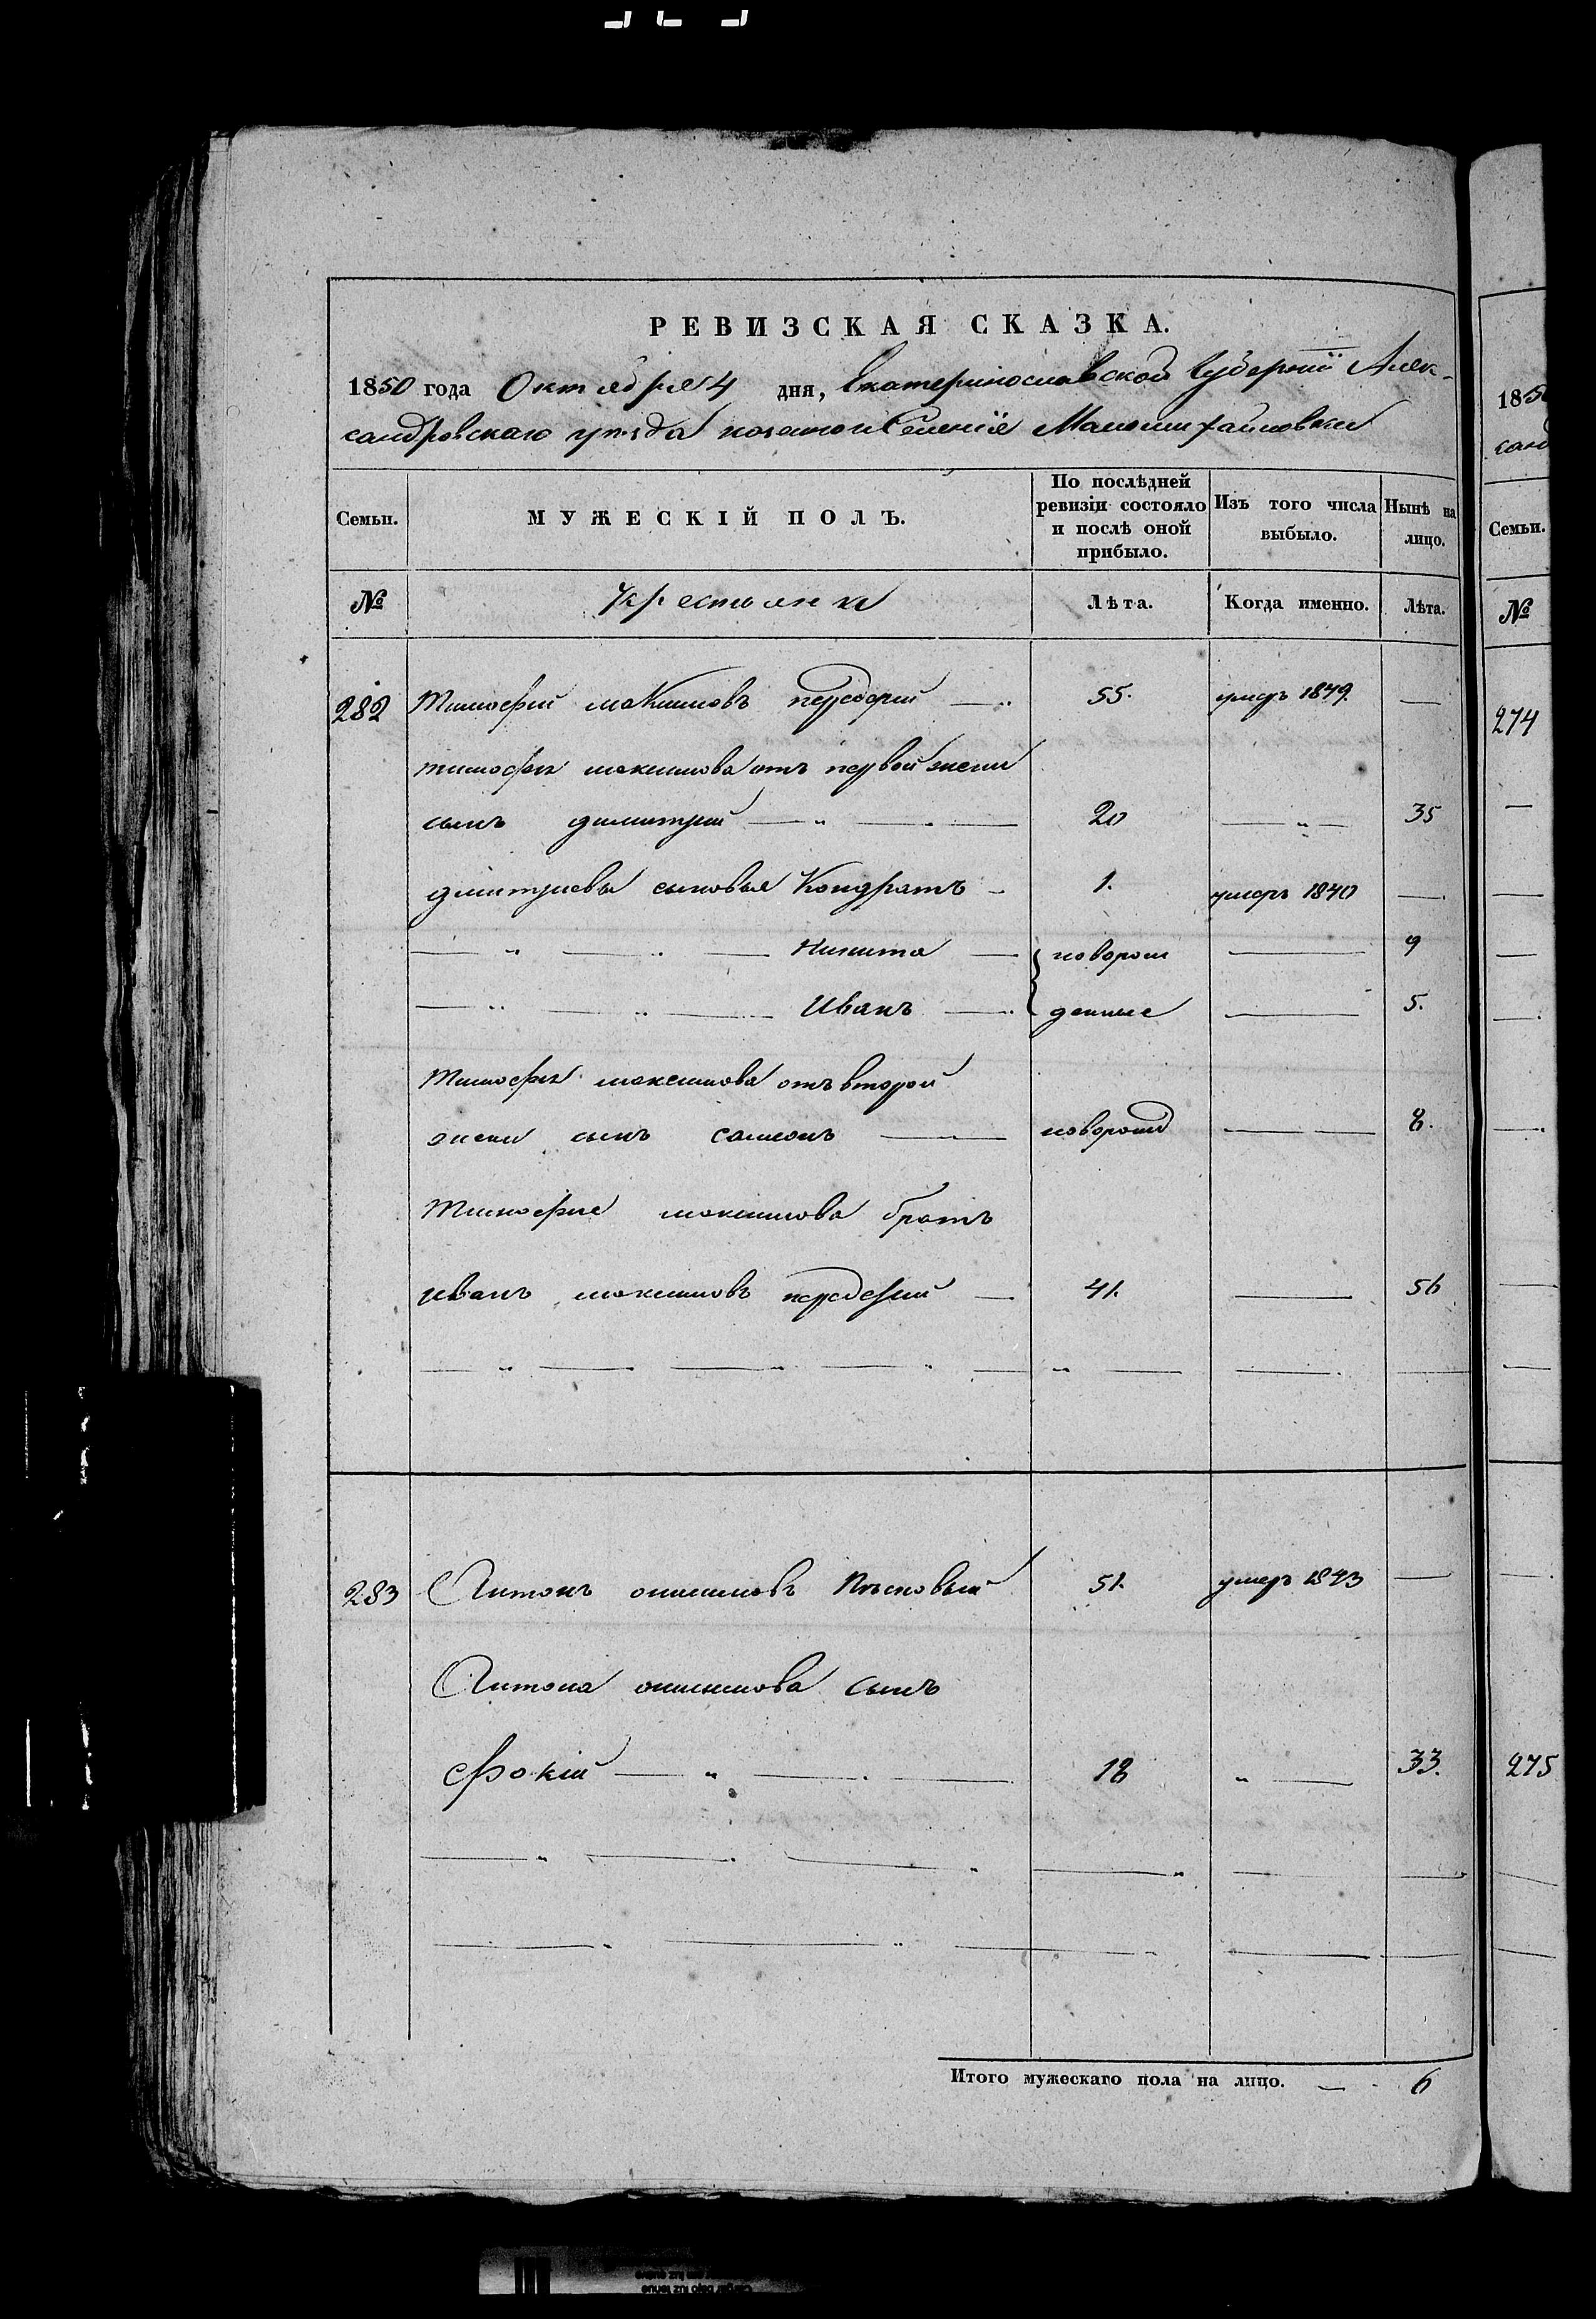 РЕВИЗСКАЯ СКАЗКА.
1850 года Октября 4 дня, Екатеринославской Губерніи Алек-
сандровскаго уѣзда казенной Селенія Маломихайловки
Семьи. МУЖЕСКІЙ ПОЛЪ. По послѣдней ревизіи состояло и послѣ оной прибыло. Изъ того числа выбыло. Нынѣ на лицо.
№ Крестьяне Лѣта. Когда именно. Лѣта.
282 Тимофей макимовъ передерій 55. умеръ 1849. —
тимофея макимова отъ первой жены
сынъ димитрий 20 — 35
дмитриевы сыновья Кондратъ 1. умеръ 1840 —
Никита новорож — 9
Иванъ денные — 5.
Тимофея максимова отъ второй
жены сынъ самсонъ новорожд — 8.
Тимофея максимова братъ
иванъ максимовъ передерий 41. — 56
283 Антонъ онисимовъ Пѣсковый 51. умеръ 1843 —
Антона онисимова сынъ
Фокій 18 — 33.
Итого мужескаго пола на лицо. — 6
1850
санд
Семьи.
№
274
275